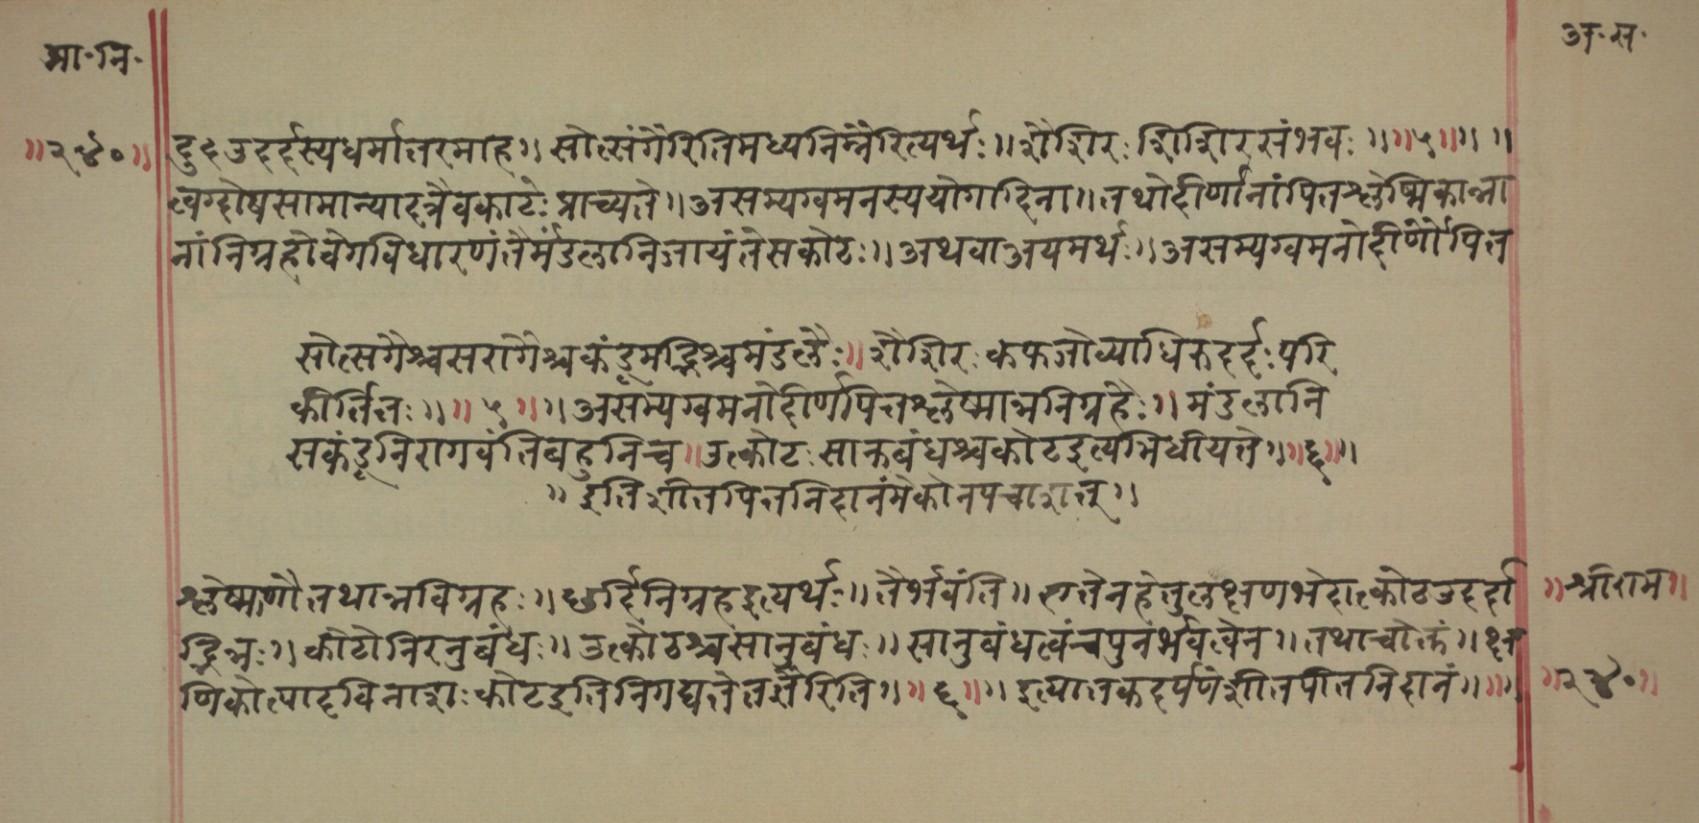 मा॰नि॰
अ॰स॰
॥२४०॥
द्रुह उदर्दस्यधर्मांतरमाह॥सोत्संगैरितिमध्यनिम्नैरित्यर्थः॥शैशिरःशिशिरसंभवः॥॥५॥॥॥
त्वग्दोषसामान्यादत्रैवकोटःप्राच्यते॥असम्यग्वमनस्ययोगादिना॥तथोदीर्णानांपित्तश्लेष्मिकान्ना
नांनिग्रहोवेगविधारणंतैर्मंडलानिजायंतेसकोटः॥अथवाअयमर्थः॥असम्यग्वमनोदीर्णौपित्त
सोत्सगैश्चसरागैश्चकंडूमद्भिश्चमंडलैः॥शैशिरःकफजोव्याधिरुदर्दःपरि
कीर्तितः॥॥५॥॥असम्यग्वमनोदीर्णपित्तश्लेष्मान्ननिग्रहैः॥मंडलानि
सकंडूनिरागवंतिबहुनिच॥उत्कोटःसानुबंधश्चकोटइत्यभिधीयते॥॥६॥॥
॥इतिशीतपित्तनिदानंमेकोनपंचाशत्॥
श्लेष्माणौतथान्नविग्रहः॥छर्दिनिग्रहइत्यर्थः॥तैर्भवंति॥एतेनहेतुलक्षणभेदात्कोठउदर्दा
द्भिन्नः॥कोटोनिरनुबंधः॥उत्कोठश्चसानुबंधः॥सानुबंधत्वंचपुनर्भवत्वेन॥तथाचोक्तं॥क्ष
णिकोत्पादविनाशःकोटइतिनिगद्यतेतज्ज्ञैरिति॥॥६॥॥इत्यातंकदर्पणेशीतपीतनिदानं॥॥॥
॥श्रीराम॥
॥२४०॥